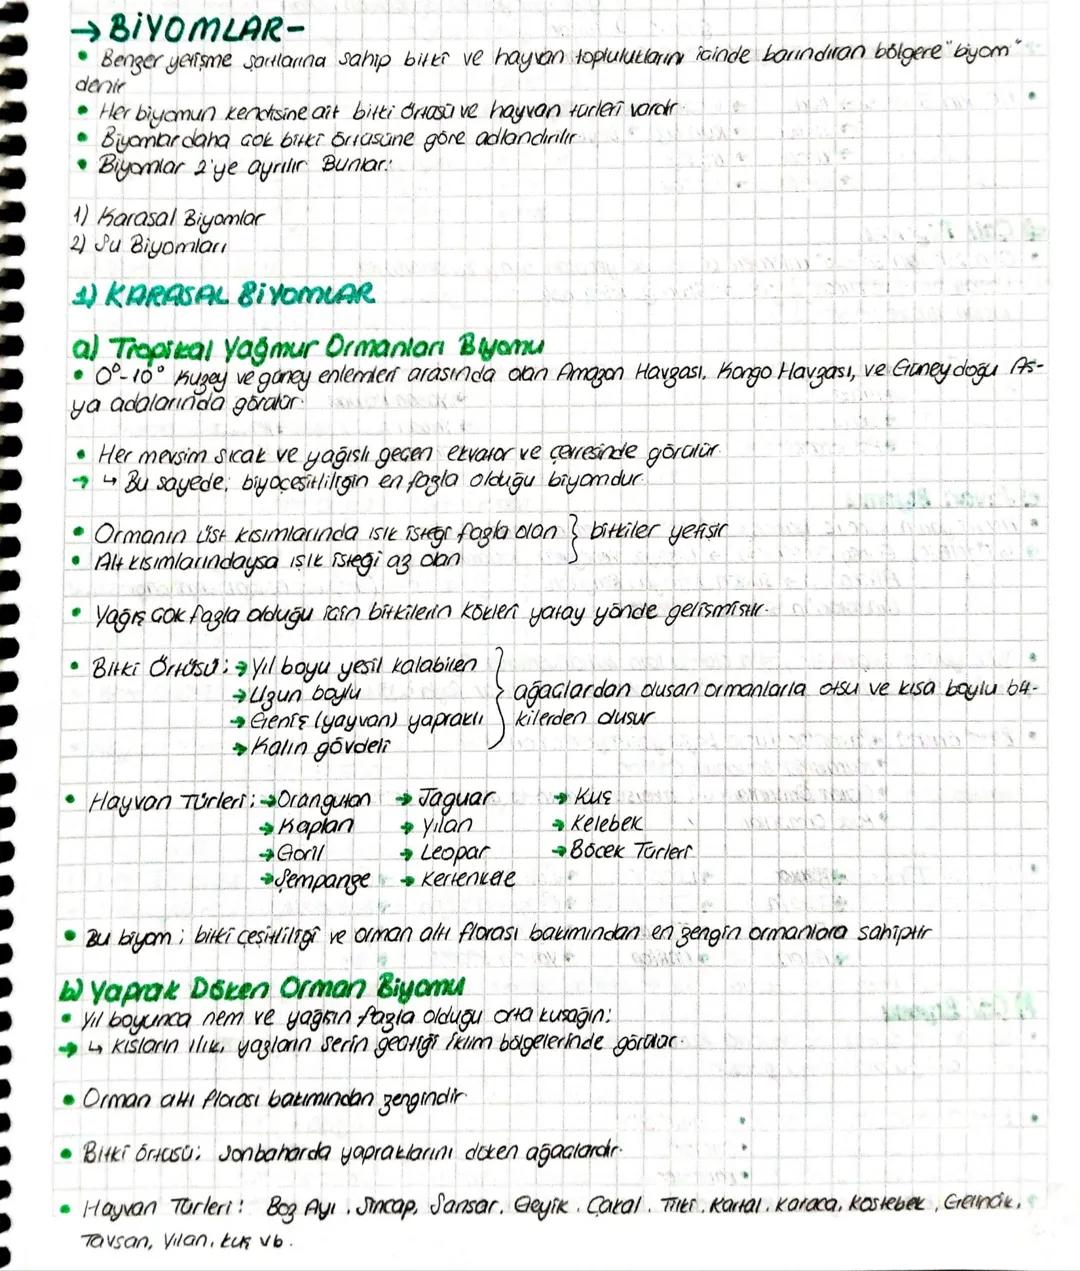 → BİYOMLAR-
• Benzer yetişme şartlarına sahip bitki ve hayvan topluluklarını içinde barındıran bölgere "biyom"
denir
• Her biyomun kendisine ait bitki örtüsü ve hayvan türleri vardır.
• Biyomlar daha çok bitki örtüsüne göre adlandırılır.
• Biyomlar 2'ye ayrılır Bunlar:
1) Karasal Biyomlar
2) Su Biyomları
1) KARASAL BİYOMLAR
a) Tropikal Yağmur Ormanları Biyomu
• 0°-10° Kuzey ve güney enlemleri arasında olan Amazon Havzası, Kongo Havzası, ve Güneydoğu As-
ya adalarında görülür.
• Her mevsim sıcak ve yağışlı geçen ekvator ve çevresinde görülür.
→ ↳ Bu sayede; biyoçeşitliliğin en fazla olduğu biyomdur.
• Ormanın üst kısımlarında ışık isteği fazla olan } bitkiler yetişir
• Alt kısımlarındaysa ışık isteği az olan
• Yağış çok fazla olduğu için bitkilerin kökleri yatay yönde gelişmiştir.
• Bitki Örtüsü: → Yıl boyu yeşil kalabilen
→ Uzun boylu } ağaçlardan oluşan ormanlarla otsu ve kısa boylu bit-
→ Geniş (yayvan) yapraklı kilerden oluşur
→ Kalın gövdeli
• Hayvan Türleri: → Orangutan → Jaguar → Kuş
→ Kaplan → Yılan → Kelebek
→ Goril → Leopar → Böcek Türleri
→ Şempanze → Kertenkele
• Bu biyom; bitki çeşitliliği ve orman altı florası bakımından en zengin ormanlara sahiptir
b) Yaprak Döken Orman Biyomu
• Yıl boyunca nem ve yağışın fazla olduğu orta kuşağın;
→ ↳ kışların ılık, yazların serin geçtiği iklim bölgelerinde görülür.
• Orman altı florası bakımından zengindir.
• Bitki örtüsü; Sonbaharda yapraklarını döken ağaçlardır.
• Hayvan Türleri: Boz Ayı, Sincap, Sansar, Geyik, Çakal, Tilki, Kartal, Karaca, Köstebek, Gelincik,
Tavşan, Yılan, kuş vb.